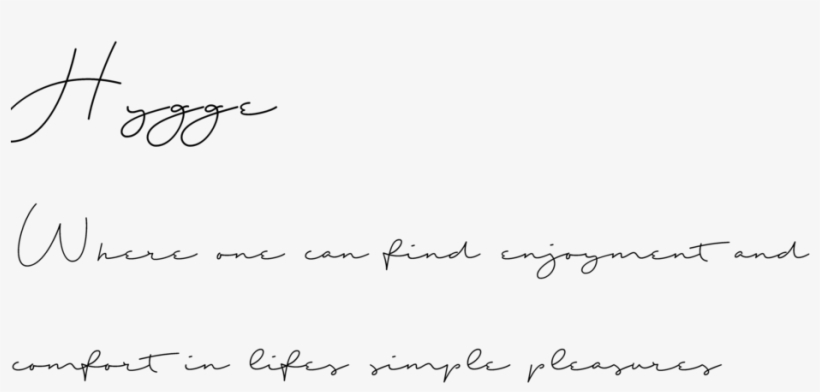 Hygge
Where one can find enjoyment and
comfort in lifes simple pleasures